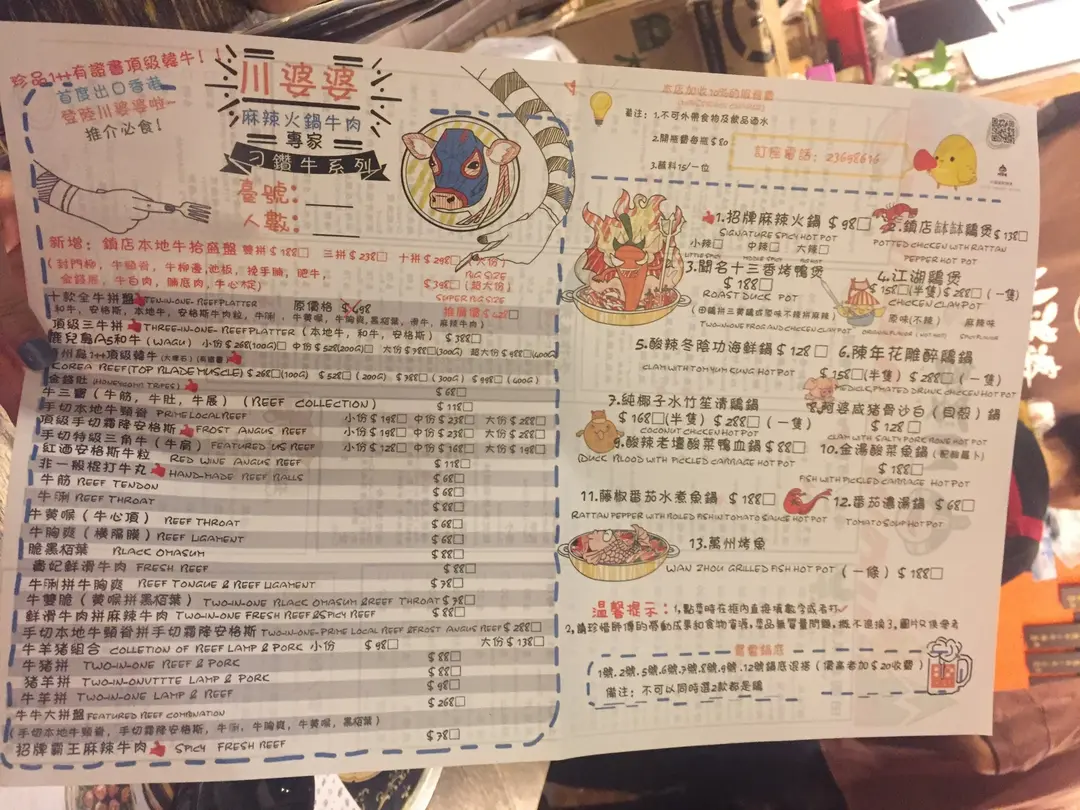 珍品1++有證書頂級韓牛!
首度出口香港
登陸川婆婆啦~
推介必食!
川婆婆
麻辣火鍋牛肉
專家
刁鑽牛系列
臺號:
人數:
新增: 鎮店本地牛拾盛盤 雙拼$188□ 三拼$238□ 十拼$298□ 大份)
BIG SIZE
$398□ (超大份)
SUPER BIG SIZE
十款全牛拼盤 TEN-IN-ONE-BEEF PLATTER 原價格 $698 推廣價$428□
頂級三牛拼 THREE-IN-ONE-BEEF PLATTER (本地牛, 和牛, 安格斯) $388□
鹿兒島A5和牛 (WAGU) 小份$268(100G)□ 中份$528(200G)□ 大份$788□(300G) 超大份$988□(400G)
KOREA BEEF(TOP BLADE MUSCLE) $268□(100G) $528□(200G) $788□(300G) $988□(400G)
金錢肚 (HONEYCOMB TRIPES) $68□
牛三寶 (牛筋, 牛肚, 牛展) (BEEF COLLECTION) $118□
手切本地牛頸脊 PRIME LOCAL BEEF 小份$198□ 中份$238□ 大份$288□
頂級手切霜降安格斯 FROST ANGUS BEEF 小份$198□ 中份$238□ 大份$288□
手切特級三角牛 (牛肩) FEATURED US BEEF 小份$128□ 中份$168□ 大份$198□
紅酒安格斯牛粒 RED WINE ANGUS BEEF $118□
非一般棍打牛丸 HAND-MADE BEEF BALLS $68□
牛筋 BEEF TENDON $68□
牛脷 BEEF THROAT $88□
牛黃喉 (牛心頂) BEEF THROAT $68□
牛胸爽 (橫隔膜) BEEF LIGAMENT $68□
脆黑栢葉 BLACK OMASUM $88□
貴妃鮮滑牛肉 FRESH BEEF $88□
牛脷拼牛胸爽 BEEF TONGUE & BEEF LIGAMENT $78□
牛雙脆 (黃喉拼黑栢葉) TWO-IN-ONE BLACK OMASUM & BEEF THROAT $78□
鮮滑牛肉拼麻辣牛肉 TWO-IN-ONE FRESH BEEF & SPICY BEEF $88□
手切本地牛頸脊拼手切霜降安格斯 TWO-IN-ONE-PRIME LOCAL BEEF & FROST ANGUS BEEF $288□
牛羊豬組合 COLLETION OF BEEF LAMB & PORK 小份 $98□ 大份$138□
牛豬拼 TWO-IN-ONE BEEF & PORK $88□
豬羊拼 TWO-IN-ONUTTTE LAMB & PORK $88□
牛羊拼 TWO-IN-ONE LAMB & BEEF $98□
牛牛大拼盤 FEATURED BEEF COMBINATION $268□
(手切本地牛頸脊, 手切霜降安格斯, 牛脷, 牛胸爽, 牛黃喉, 黑栢葉)
招牌霸王麻辣牛肉 SPICY FRESH BEEF $78□
本店加收10%的服務費
備注: 1.不可外帶食物及飲品酒水
2.開瓶費每瓶$80
3.醬料15/一位
訂座電話: 23698616
1.招牌麻辣火鍋 $98□
SIGNATURE SPICY HOT POT
小辣□ 中辣□ 大辣□
2.鎮店缽缽鷄煲 $138□
POTTED CHICKEN WITH RATTAN
PEPPER HOT POT
3.聞名十三香烤鴨煲
$188□
ROAST DUCK POT
4.江湖鷄煲
$158□(半隻) $288□ (一隻)
CHICKEN CLAY POT
原味(不辣) 麻辣味
TWO-IN-ONE FROG AND CHICKEN CLAY POT
5.酸辣冬陰功海鮮鍋 $128□
CLAM WITH TOM YUM KUNG HOT POT
6.陳年花雕醉鷄鍋
$158□(半隻) $288□ (一隻)
DRUNK CHICKEN HOT POT
7.純椰子水竹笙清鷄鍋
$168□(半隻) $288□ (一隻)
COCONUT CHICKEN HOT POT
8.阿婆咸猪骨沙白 (貝殼) 鍋
$128□
CLAM WITH SALTY PORK BONE HOT POT
9.酸辣老壇酸菜鴨血鍋 $88□
(DUCK BLOOD WITH PICKLED CABBAGE HOT POT
10.金湯酸菜魚鍋 (配酸蘿卜)
$188□
FISH WITH PICKLED CABBAGE HOT POT
11.藤椒番茄水煮魚鍋 $188□
RATTAN PEPPER WITH BOILED FISH IN TOMATO SAUCE HOT POT
12.番茄濃湯鍋 $68□
TOMATO SOUP HOT POT
13.萬州烤魚
WAN ZHOU GRILLED FISH HOT POT (一條) $188□
溫馨提示: 1,點菜時在框內直接填數字或者打✓
2,請珍惜師傅的勞動成果和食物資源,菜品無質量問題,概不退換 3,圖片僅供參考
鴛鴦鍋底
1號.2號.5號.6號.7號.8號.9號.12號鍋底選搭 (價高者加$20收費)
備注: 不可以同時選2款都是鷄